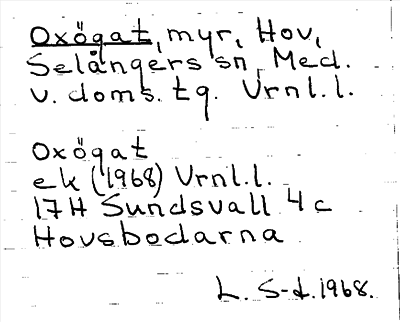 Oxögat, myr, Hov,
Selångers sn, Med.
v. doms. tg. Vrnl.l.
Oxögat
ek (1968) Vrnl.l.
17H Sundsvall 4c
Hovsbodarna
L. S-d. 1968.